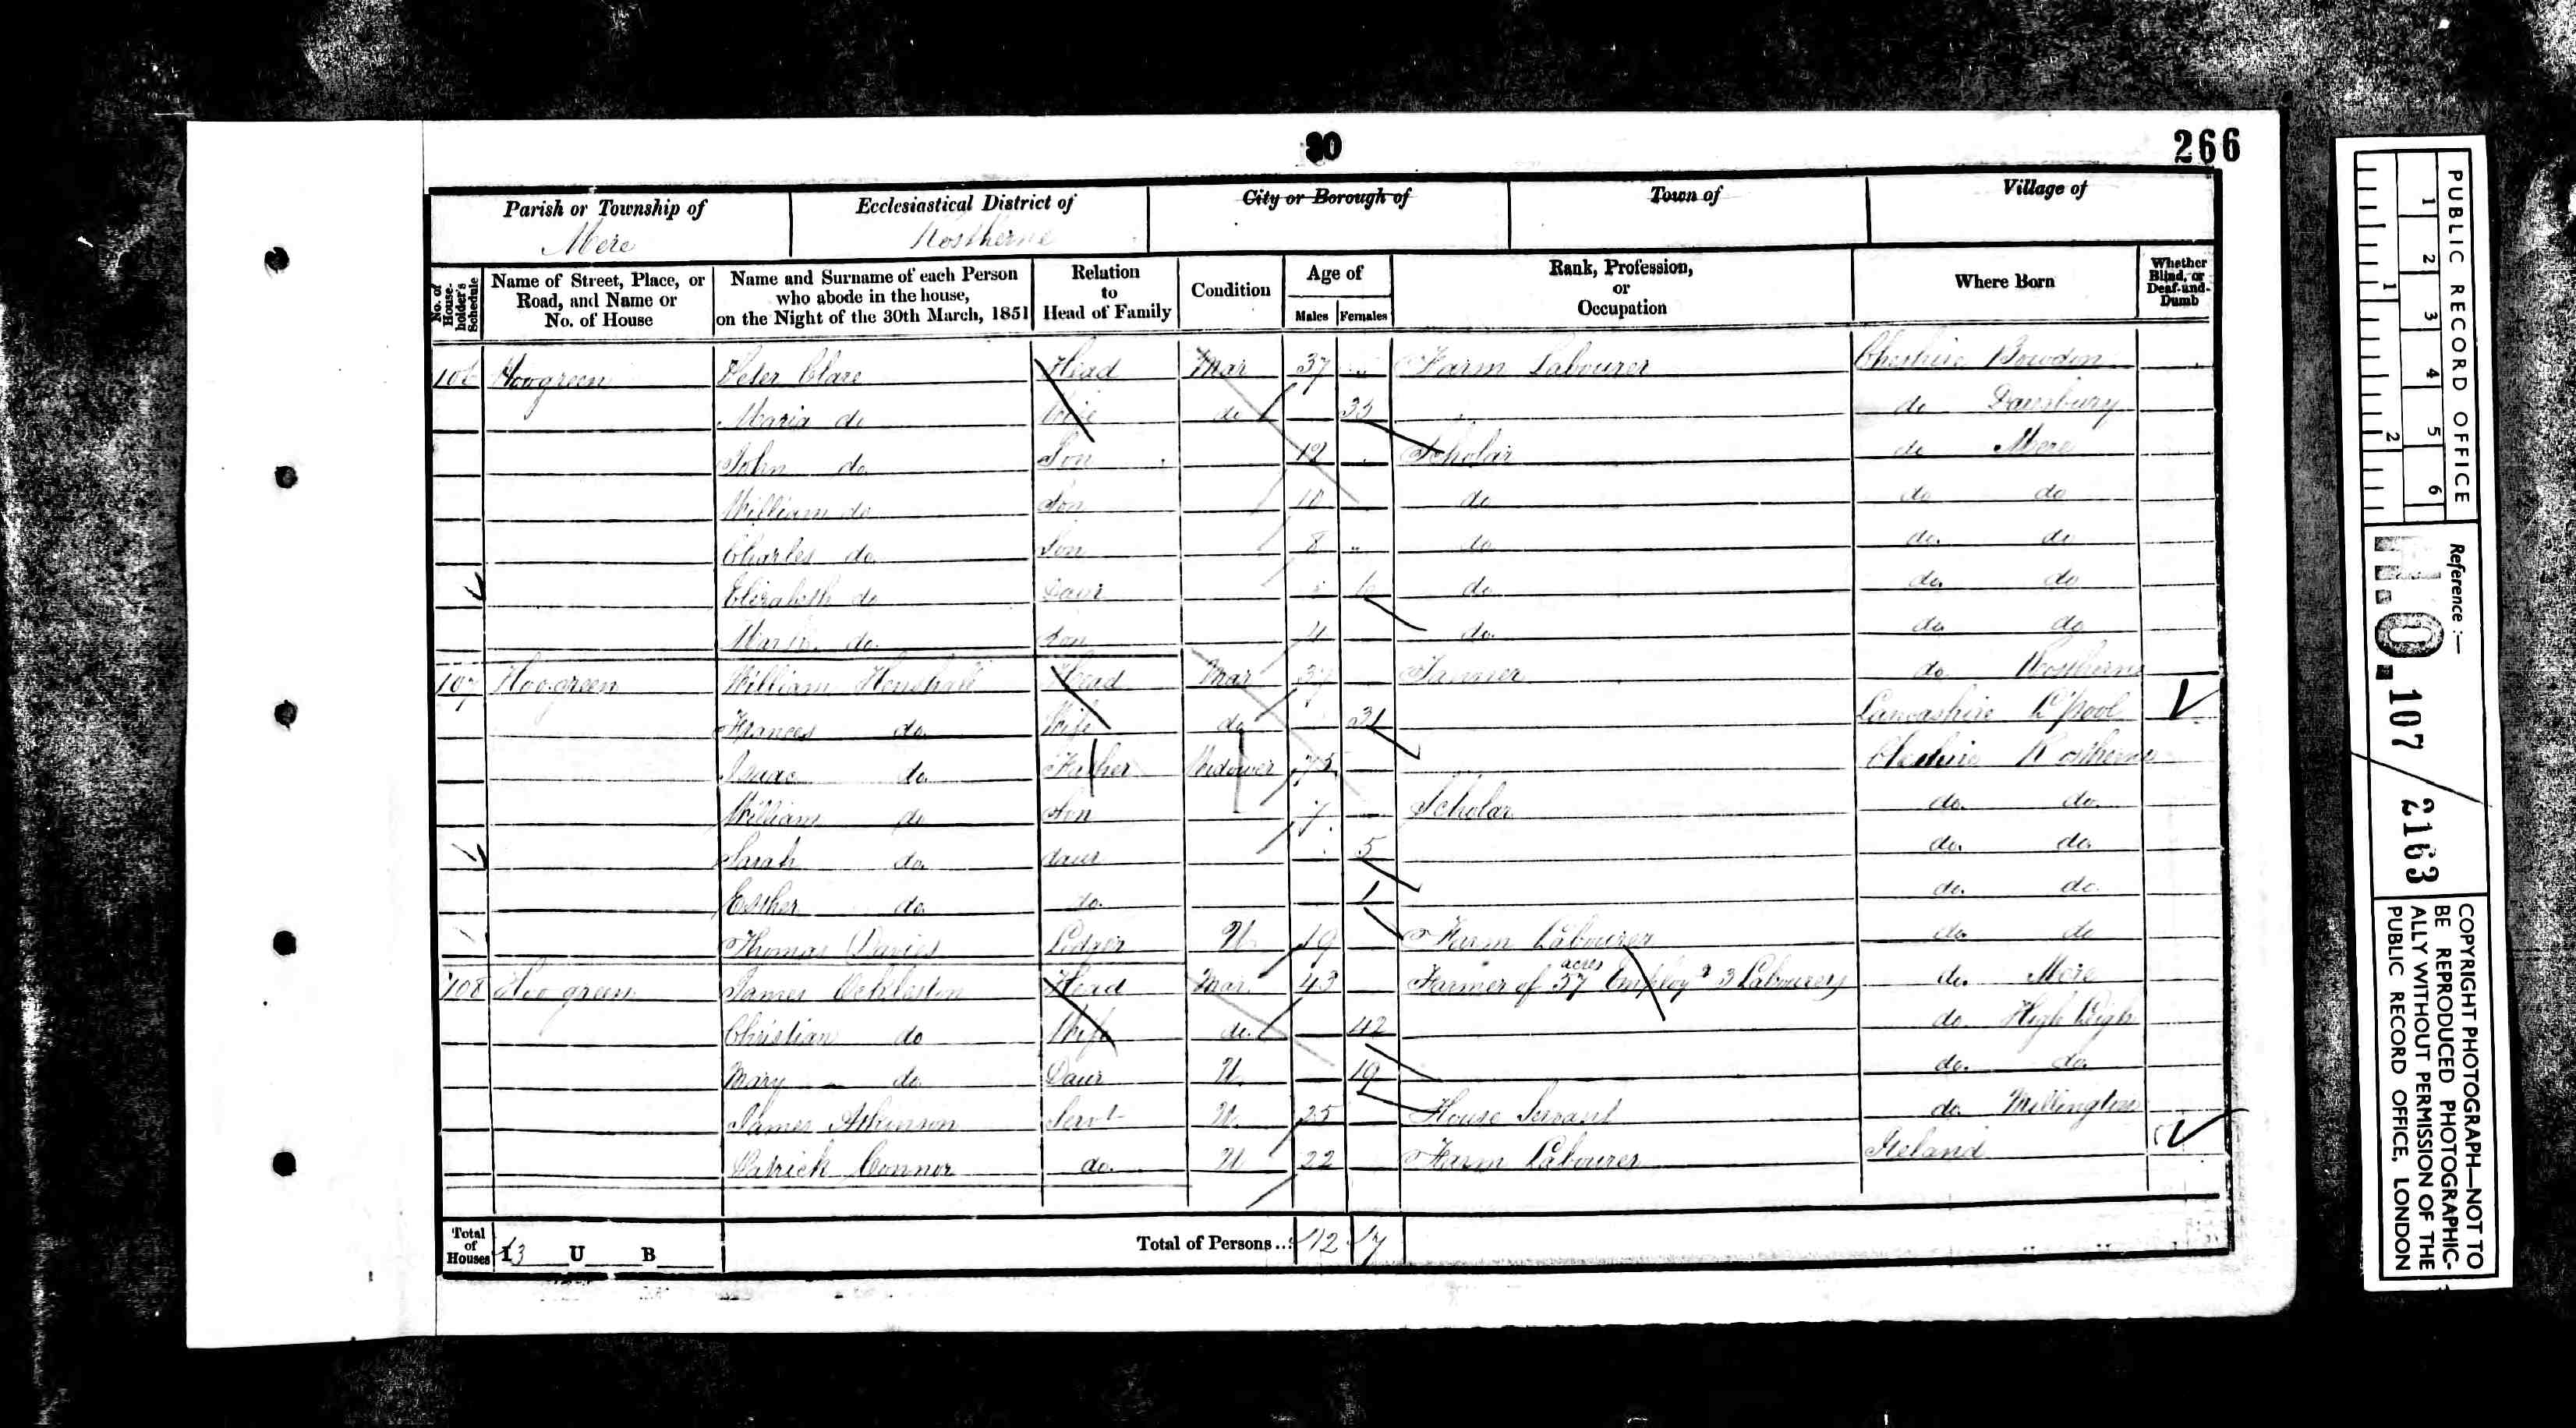 30
266
Parish or Township of
Mere
Ecclesiastical District of
Rostherne
City or Borough of
Town of
Village of
No. of House-holder's Schedule
Name of Street, Place, or Road, and Name or No. of House
Name and Surname of each Person who abode in the house, on the Night of the 30th March, 1851
Relation to Head of Family
Condition
Age of
Males Females
Rank, Profession, or Occupation
Where Born
Whether Blind, or Deaf-and-Dumb
106 Hoogreen Peter Clare Head Mar 37 Farm Labourer Cheshire Bowdon
Maria do Wife do 35 do Daresbury
John do Son 12 Scholar do Mere
William do Son 10 do do do
Charles do Son 8 do do do
Elizabeth do Daur 6 do do do
do Son 4 do do do
107 Hoogreen William Henshall Head Mar 37 do Rostherne
Frances do Wife do 31 Lancashire L'pool
Isaac do Father Widower 75 Cheshire Rostherne
William do Son 7 Scholar do do
Sarah do daur 5 do do
Esther do do 1 do do
Thomas Davies Lodger U 19 Farm Labourer do do
108 Hoo green James Head Mar 43 Farmer of 37 acres Employg 3 Labourers do Mere
Christian do Wife do 42 do High Leigh
Mary do Daur U 19 do do
James Atkinson Servt U 25 House Servant do Millington
Patrick Connor do U 22 Farm Labourer Ireland
Total of Houses I 3 U B
Total of Persons... 12 7
PUBLIC RECORD OFFICE
1 2 3 4 5 6
1 2
Reference :—
H.O. 107 / 2163
COPYRIGHT PHOTOGRAPH—NOT TO
BE REPRODUCED PHOTOGRAPHIC-
ALLY WITHOUT PERMISSION OF THE
PUBLIC RECORD OFFICE, LONDON